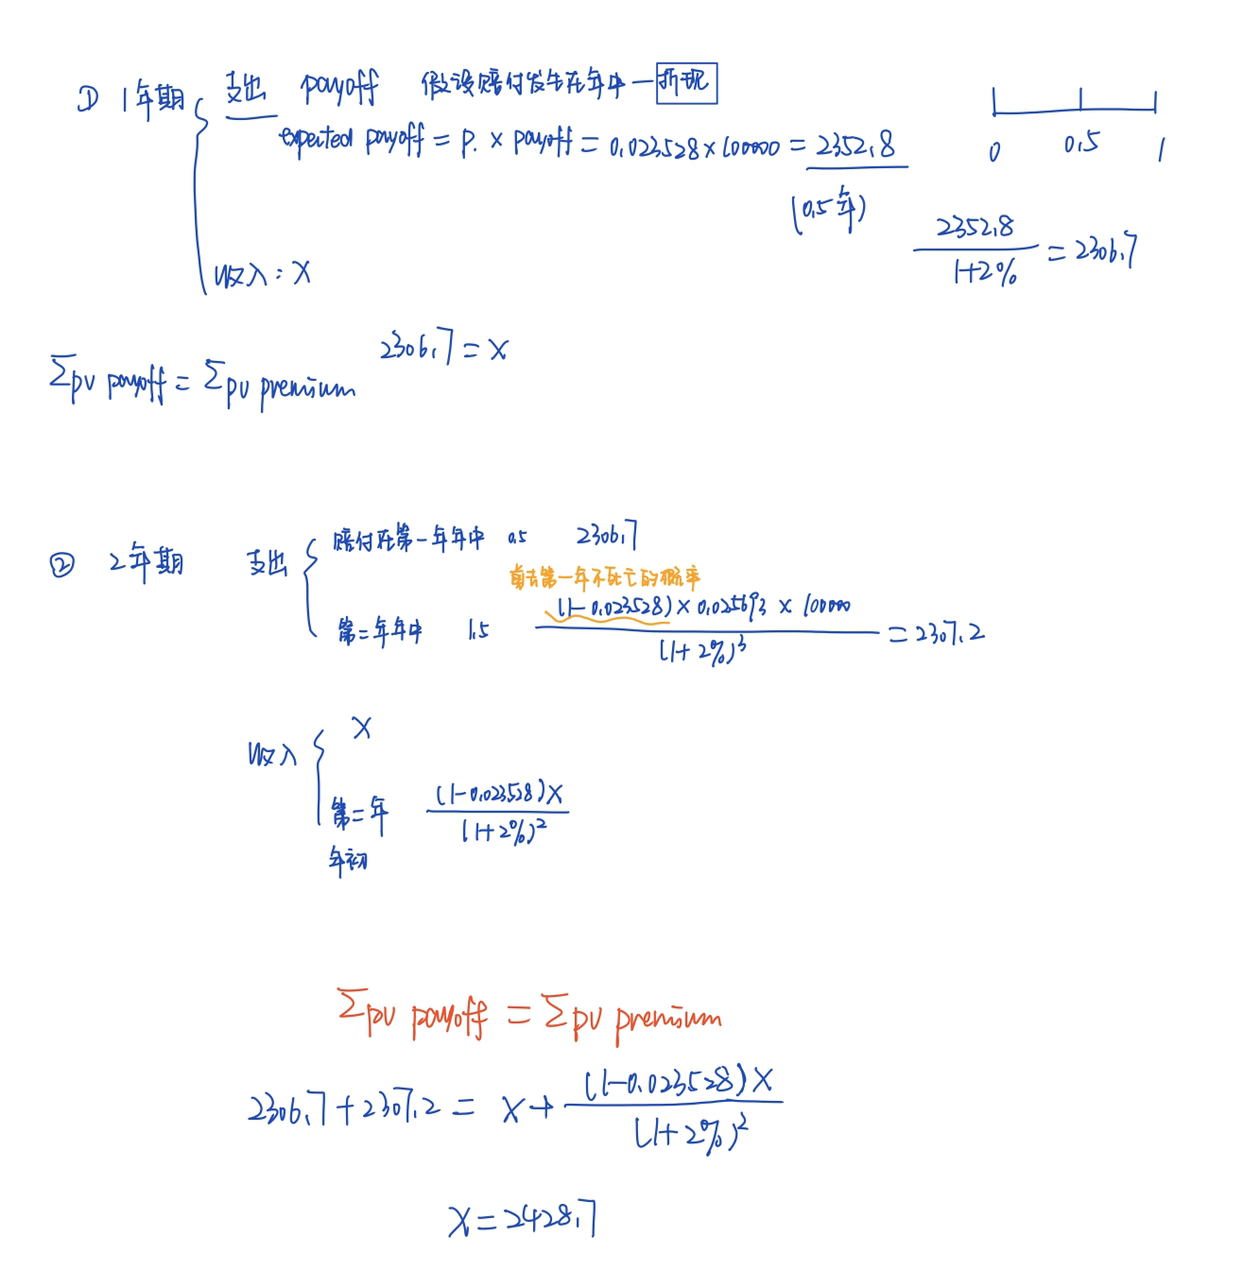 ① 1年期 支出 payoff 假设赔付发生在年中—折现
expected payoff = p. × payoff = 0.023528 × 100000 = 2352.8
(0.5年)
0 0.5 1
2352.8 / 1+2% = 2306.7
收入：X
2306.7 = X
Σpv payoff = Σpv premium
② 2年期 支出 赔付在第一年年中 0.5 2306.7
第一年不死亡的概率
第二年年中 1.5 (1-0.023528) × 0.025693 × 100000 / (1+2%)³ = 2307.2
收入 X
第二年 (1-0.023528)X / (1+2%)²
年初
Σpv payoff = Σpv premium
2306.7 + 2307.2 = X + (1-0.023528)X / (1+2%)²
X = 2428.7